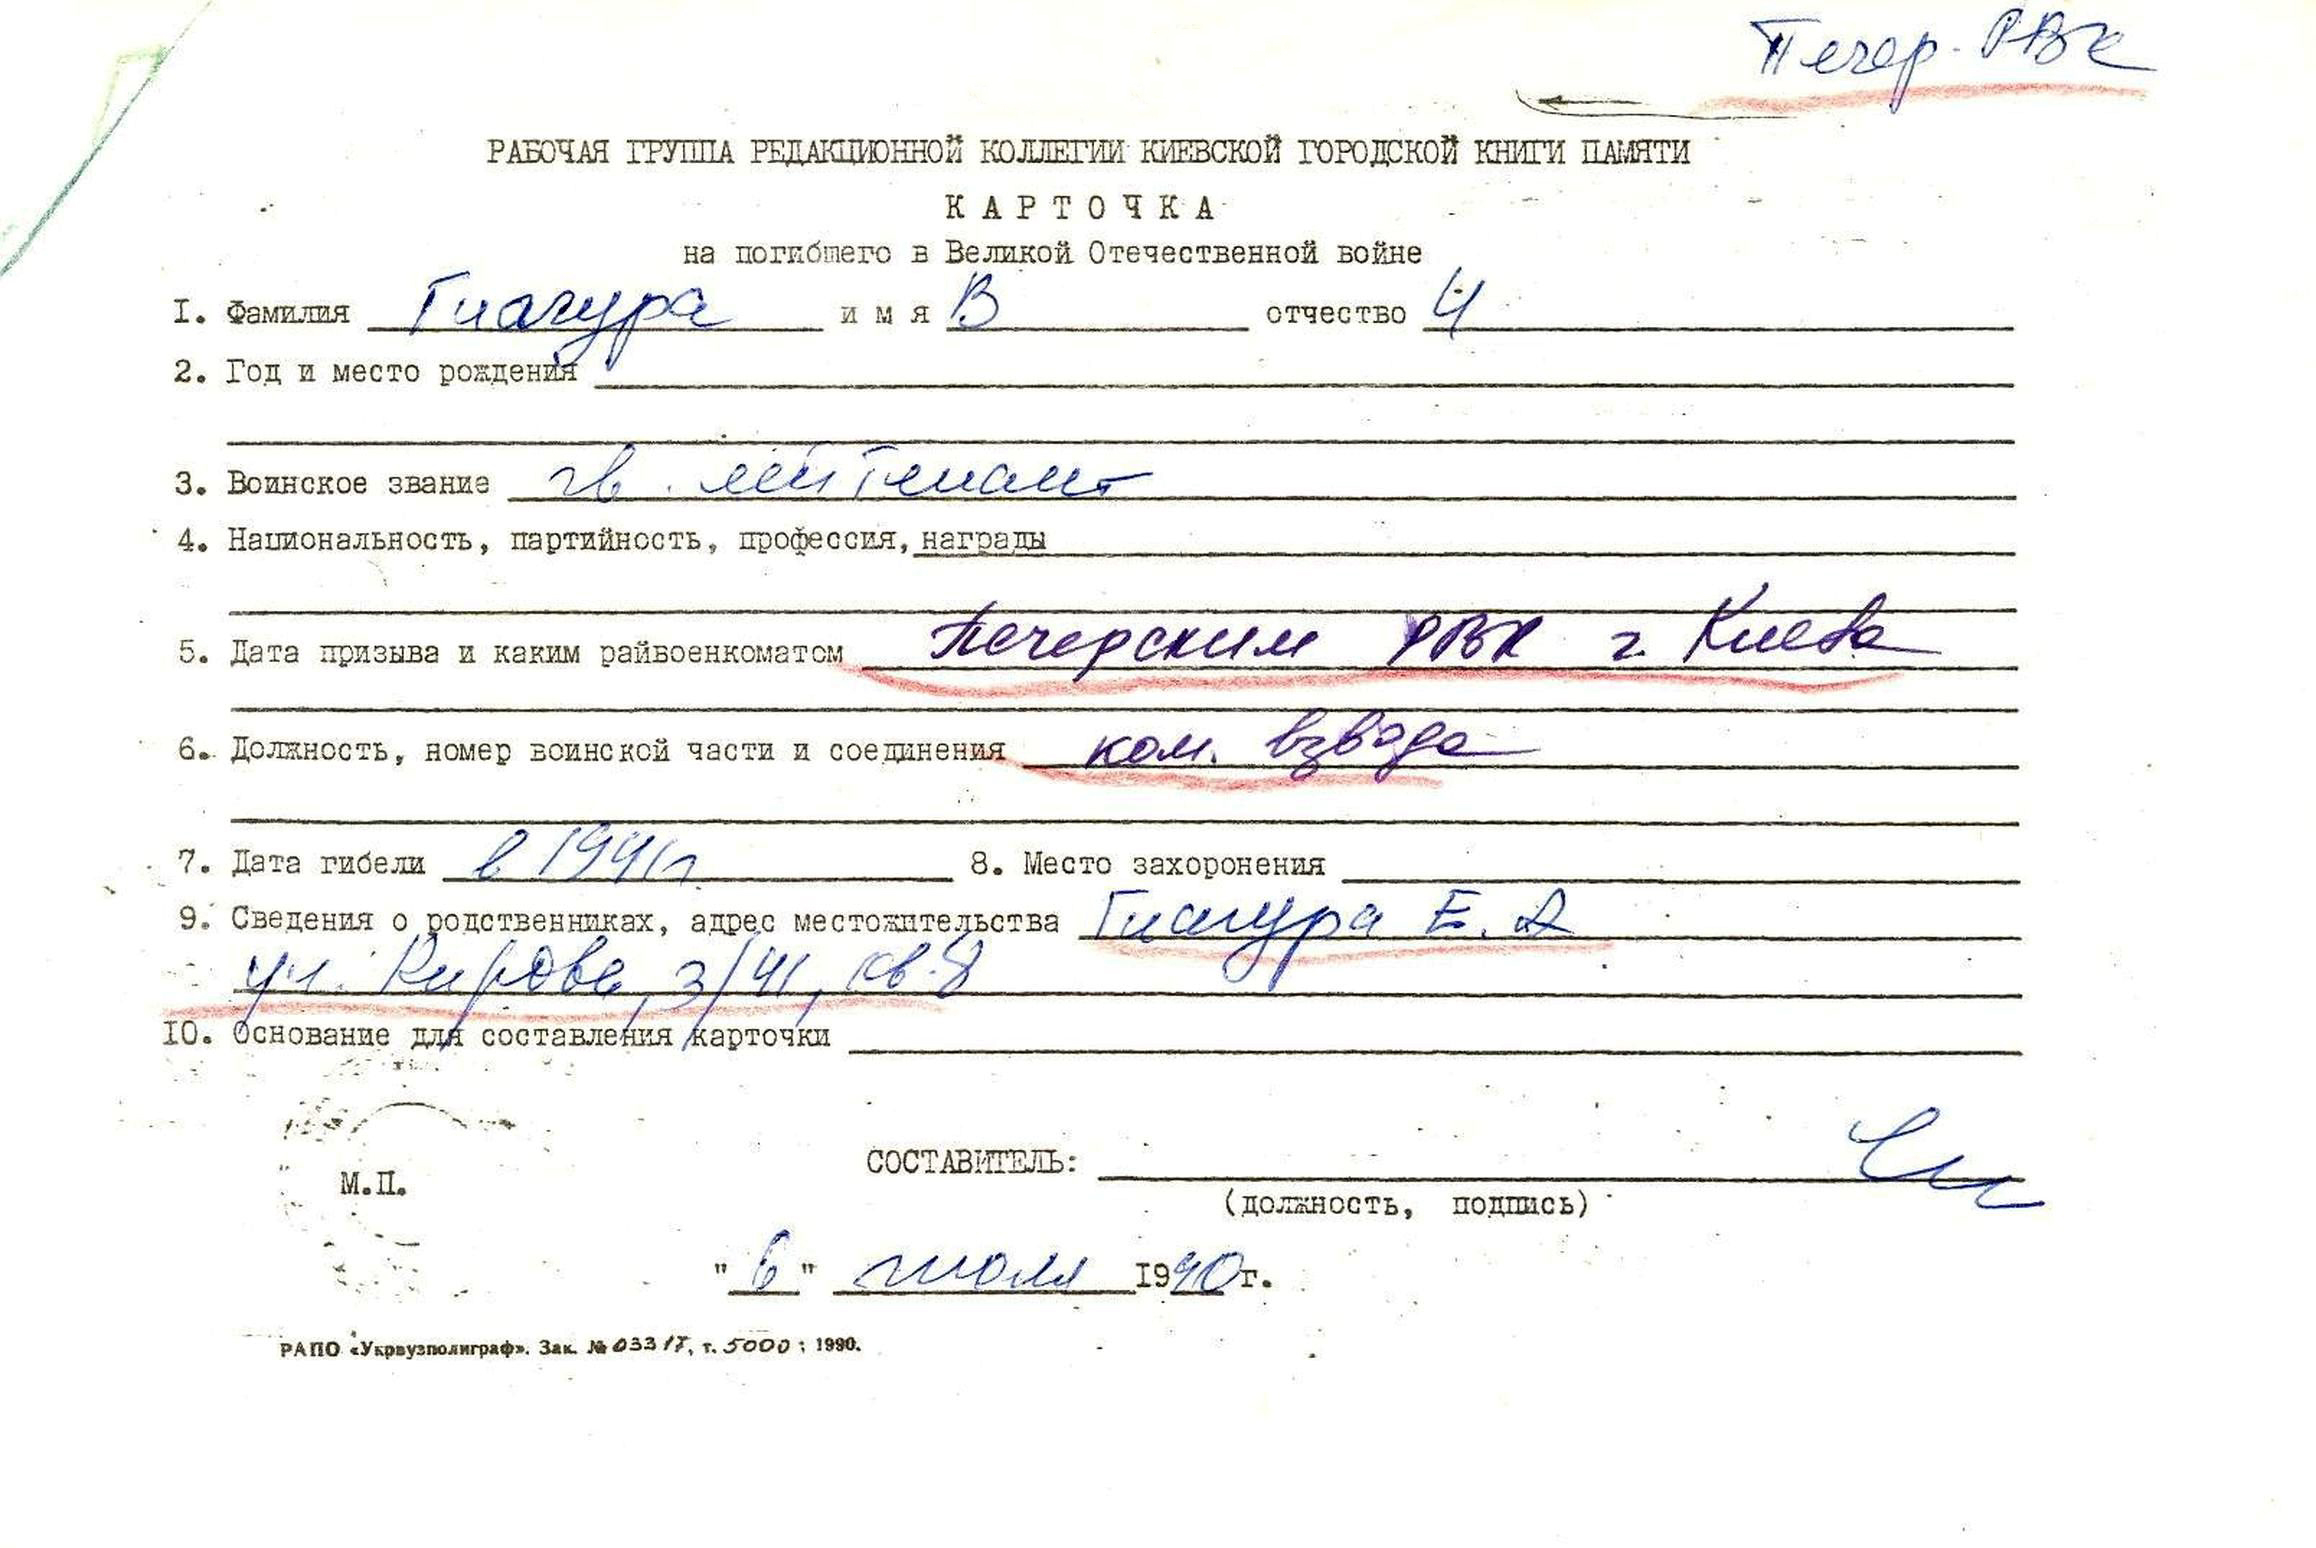 Печер. РВК
РАБОЧАЯ ГРУППА РЕДАКЦИОННОЙ КОЛЛЕГИИ КИЕВСКОЙ ГОРОДСКОЙ КНИГИ ПАМЯТИ
КАРТОЧКА
на погибшего в Великой Отечественной войне
I. Фамилия Гиагура имя В отчество И
2. Год и место рождения
3. Воинское звание гв. лейтенант
4. Национальность, партийность, профессия, награды
5. Дата призыва и каким райвоенкоматом Печерским РВК г. Киева
6. Должность, номер воинской части и соединения ком. взвода
7. Дата гибели в 1941г 8. Место захоронения
9. Сведения о родственниках, адрес местожительства Гиагура Е. А
ул. Кирова, 3/41, кв. 8
IO. Основание для составления карточки
СОСТАВИТЕЛЬ:
М.П.
(должность, подпись)
"6" июля 1990г.
РАПО «Укрвузполиграф». Зак. № 03317, т. 5000; 1990.